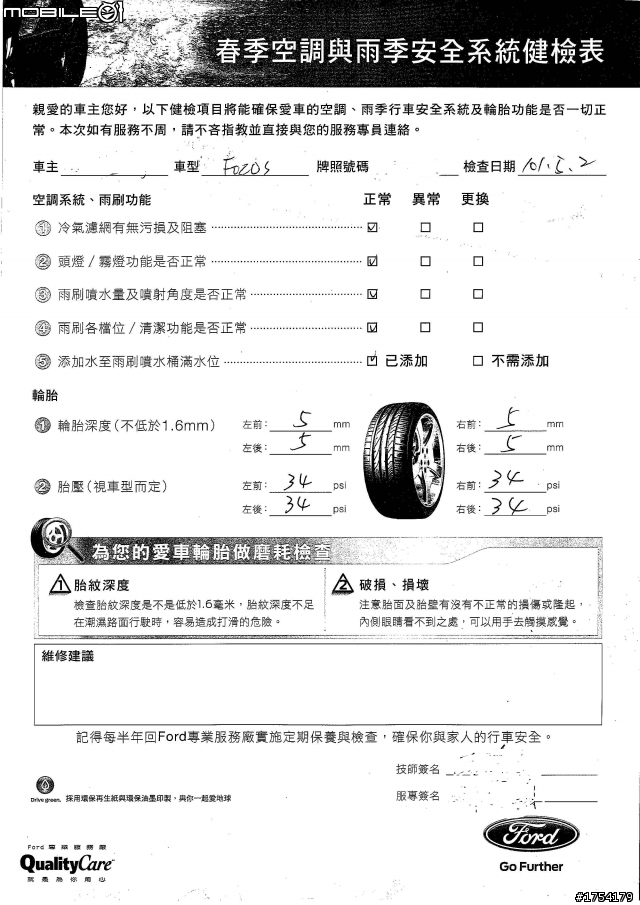 MOBILE01
春季空調與雨季安全系統健檢表
親愛的車主您好，以下健檢項目將能確保愛車的空調、雨季行車安全系統及輪胎功能是否一切正
常。本次如有服務不周，請不吝指教並直接與您的服務專員連絡。
車主 車型 Focus 牌照號碼 檢查日期 101.5.2
空調系統、雨刷功能 正常 異常 更換
1 冷氣濾網有無污損及阻塞 ☑ □ □
2 頭燈／霧燈功能是否正常 ☑ □ □
3 雨刷噴水量及噴射角度是否正常 ☑ □ □
4 雨刷各檔位／清潔功能是否正常 ☑ □ □
5 添加水至雨刷噴水桶滿水位 ☑ 已添加 □ 不需添加
輪胎
1 輪胎深度(不低於1.6mm) 左前: 5 mm 右前: 5 mm
左後: 5 mm 右後: 5 mm
2 胎壓(視車型而定) 左前: 34 psi 右前: 34 psi
左後: 34 psi 右後: 34 psi
為您的愛車輪胎做磨耗檢查
1 胎紋深度
檢查胎紋深度是不是低於1.6毫米，胎紋深度不足
在潮濕路面行駛時，容易造成打滑的危險。
2 破損、損壞
注意胎面及胎壁有沒有不正常的損傷或隆起，
內側眼睛看不到之處，可以用手去觸摸感覺。
維修建議
記得每半年回Ford專業服務廠實施定期保養與檢查，確保你與家人的行車安全。
技師簽名
服專簽名
Drive green. 採用環保再生紙與環保油墨印製、與你一起愛地球
Ford 專業服務廠
QualityCare
就是為你用心
Ford
Go Further
#1754179